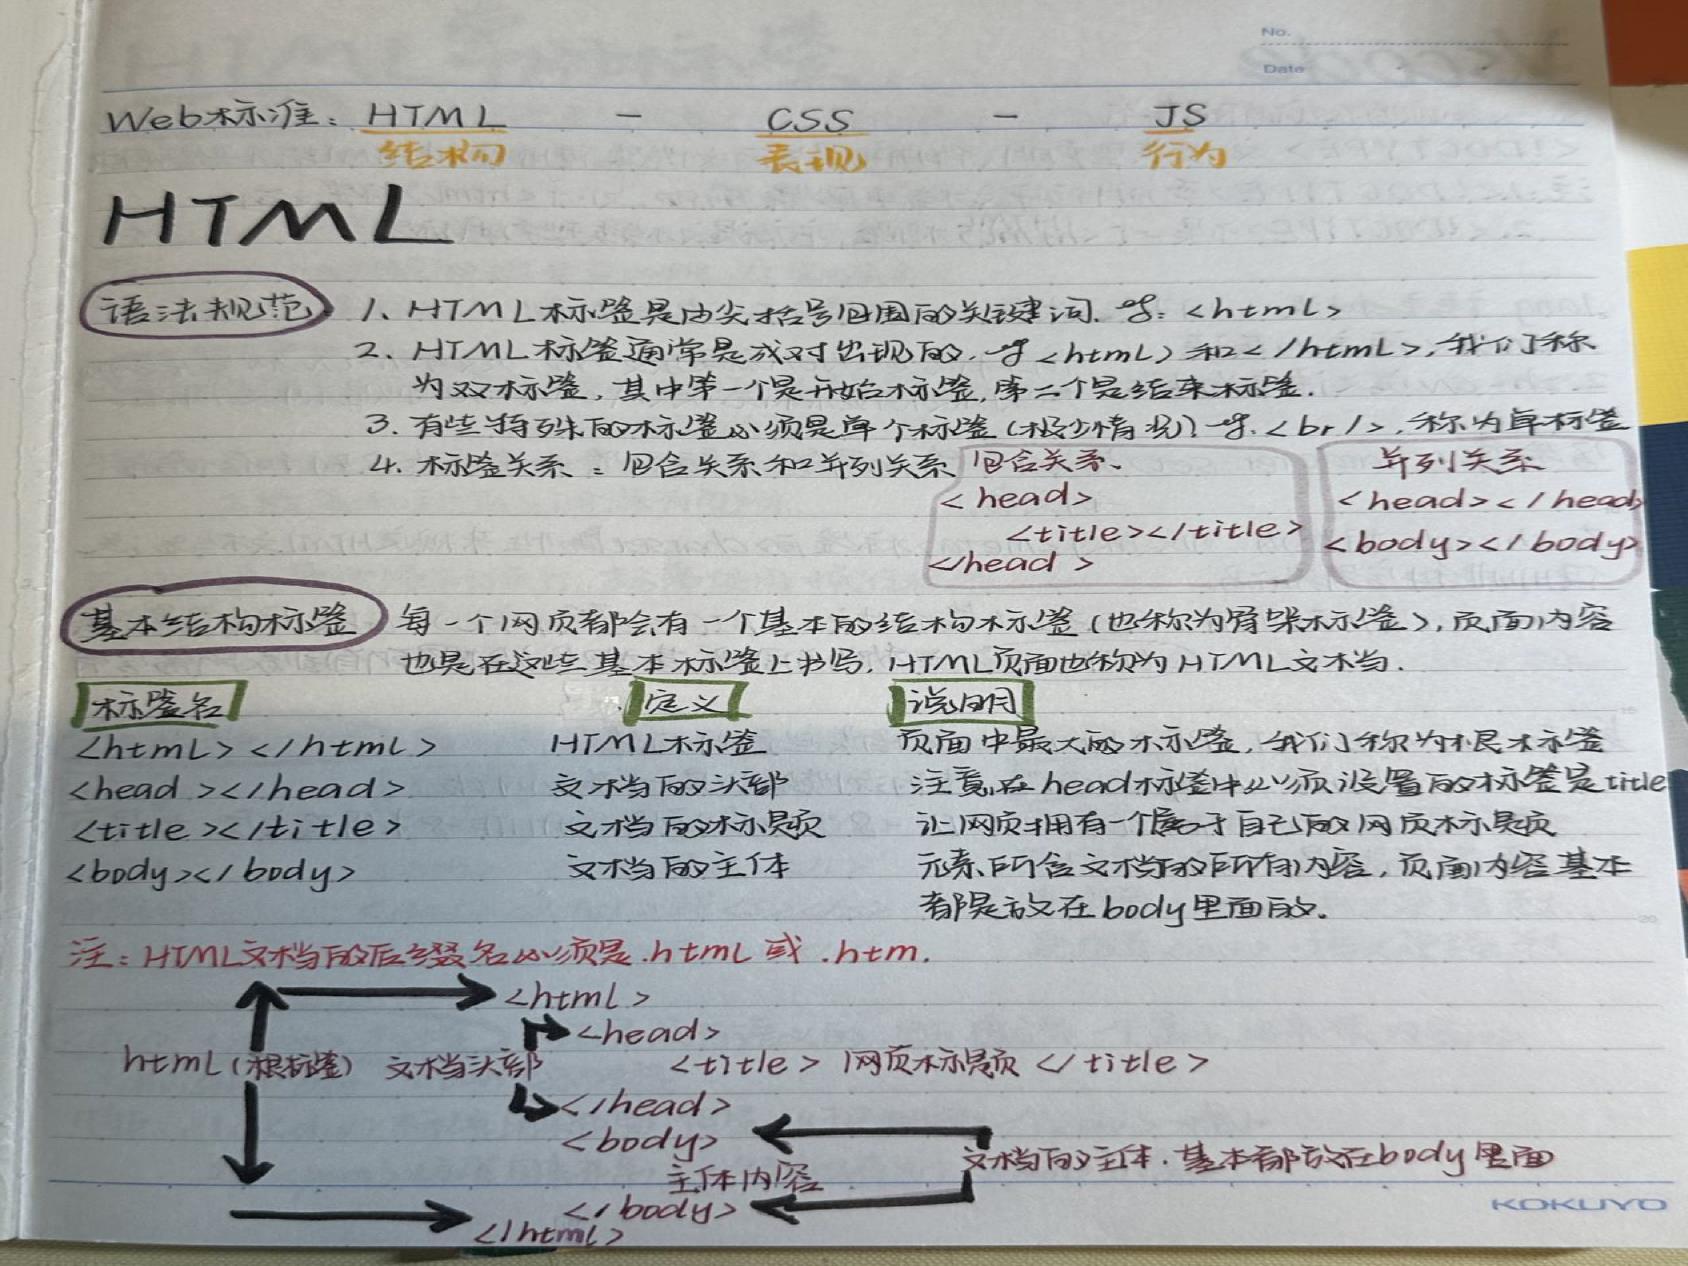 No.
Date
Web标准: HTML - CSS - JS
结构 表现 行为
HTML
语法规范 1. HTML标签是由尖括号包围的关键词. 如: <html>
2. HTML标签通常是成对出现的. 如<html>和</html>, 我们称
为双标签, 其中第一个是开始标签, 第二个是结束标签.
3. 有些特殊的标签必须是单个标签(极少情况). 如. <br/>, 称为单标签
4. 标签关系: 包含关系和并列关系
包含关系.
<head>
<title></title>
</head>
并列关系
<head></head>
<body></body>
基本结构标签 每一个网页都会有一个基本的结构标签(也称为骨架标签), 页面内容
也是在这些基本标签上书写. HTML页面也称为HTML文档.
标签名 定义 说明
<html></html> HTML标签 页面中最大的标签, 我们称为根标签
<head></head> 文档的头部 注意在head标签中必须设置的标签是title
<title></title> 文档的标题 让网页拥有一个属于自己的网页标题
<body></body> 文档的主体 元素所含文档的所有内容, 页面内容基本
都是放在body里面的.
注: HTML文档的后缀名必须是.html或.htm.
<html>
<head>
html(根标签) 文档头部 <title>网页标题</title>
</head>
<body>
文档的主体. 基本都放在body里面
主体内容
</body>
</html>
KOKUYO